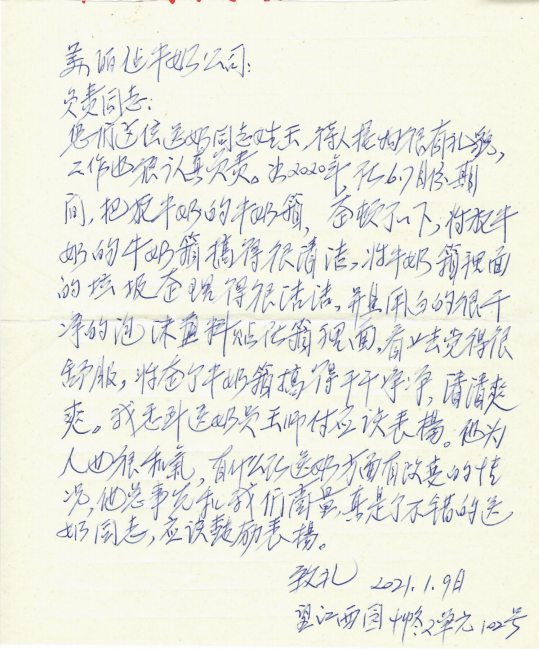 美丽健牛奶公司：
负责同志：
您们这位送奶同志姓王，待人接物很有礼貌，
工作也很认真负责。为2020年，在6.7月份期
间，把放牛奶的牛奶箱，查顿了一下，将放牛
奶的牛奶箱搞得很清洁，将牛奶箱裡面
的垃圾查理得很洁洁，并且用白的很干
净的泡沫塑料贴在箱里面，看上去觉得很
舒服，将查个牛奶箱搞得干干净净，清清爽
爽。我感到送奶员王师付应该表楊。他为
人也很和氣，有什么在送奶方面有改变的情
况，他总事先和我们商量，真是个不错的送
奶同志，应该鼓励表楊。
致礼 2021.1.9日
望江西园 2单元102号